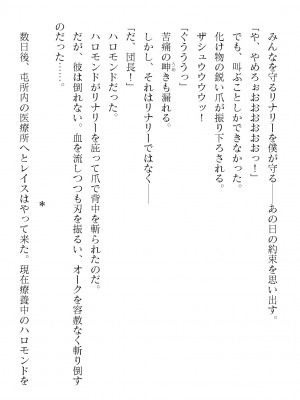 みんなを守るリナリーを僕が守る――あの日の約束を思い出す。
「や、やめろぉおおおおおおっ！」
でも、叫ぶことしかできなかった。
化け物の鋭い爪が振り下ろされる。
ザシュウウウウッ！
「ぐうううっ」
苦痛の呻きも漏れる。
しかし、それはリナリーではなく――
「だ、団長！」
ハロモンドだった。
ハロモンドがリナリーを庇って爪で背中を斬られたのだ。
だが、彼は倒れない。血を流しつつも刃を振るい、オークを容赦なく斬り倒す
のだった……。
＊
数日後、屯所内の医療所へとレイスはやって来た。現在療養中のハロモンドを